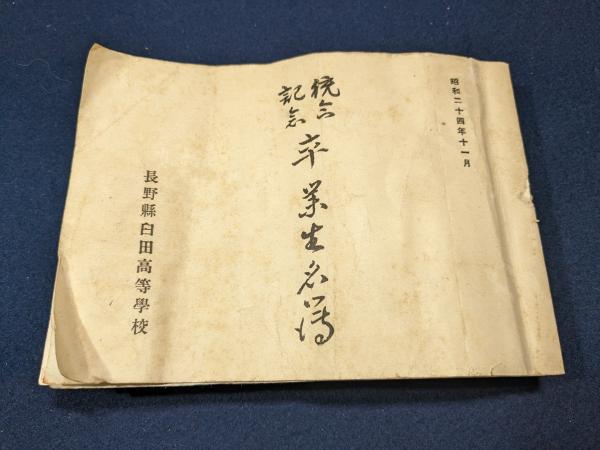 昭和二十四年十一月
統合
記念
卒業生名簿
長野縣臼田高等學校